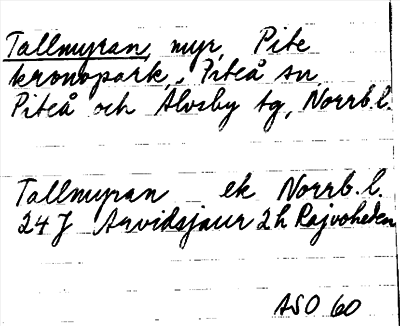 Tallmyran, myr, Pite
kronopark, Piteå sn,
Piteå och Älvsby tg, Norrb.l.
Tallmyran ek Norrb.l.
24 J Arvidsjaur 2h Rajvoheden
ASO 60